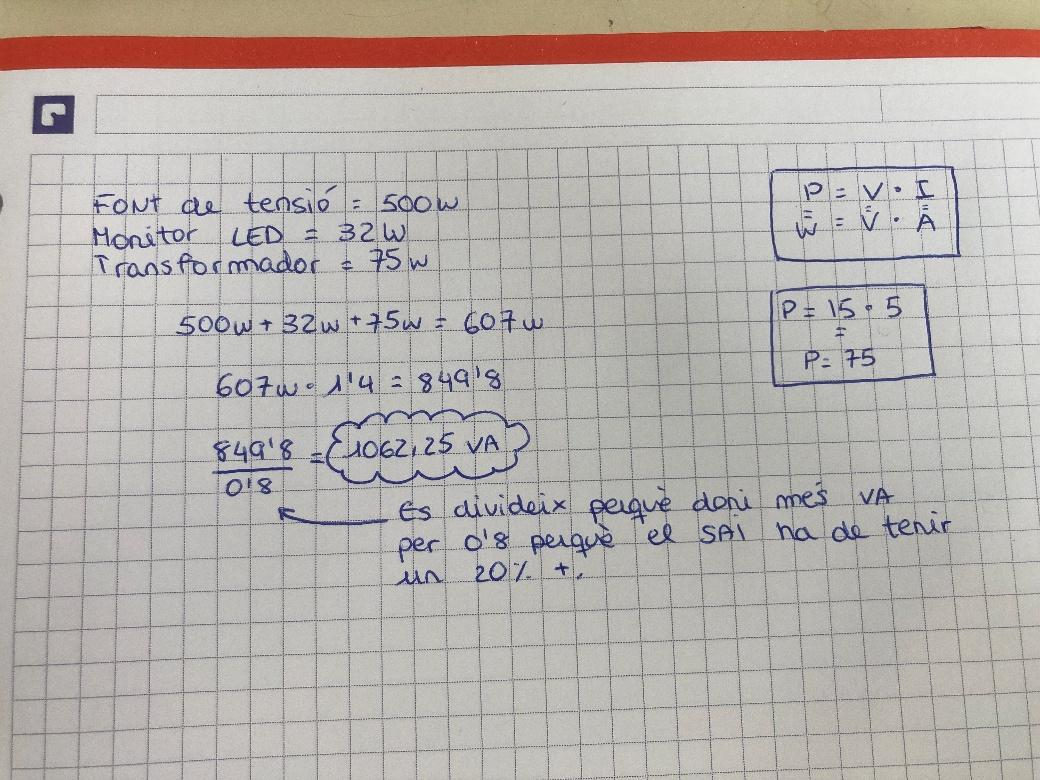 Font de tensió = 500w
Monitor LED = 32W
Transformador = 75w
500w + 32w + 75w = 607w
607w · 1'4 = 849'8
849'8
0'8
= 1062,25 VA
Es divideix perquè doni més VA
per 0'8 perquè el SAI ha de tenir
un 20% +.
P = V · I
= = =
W = V · A
P = 15 · 5
=
P = 75